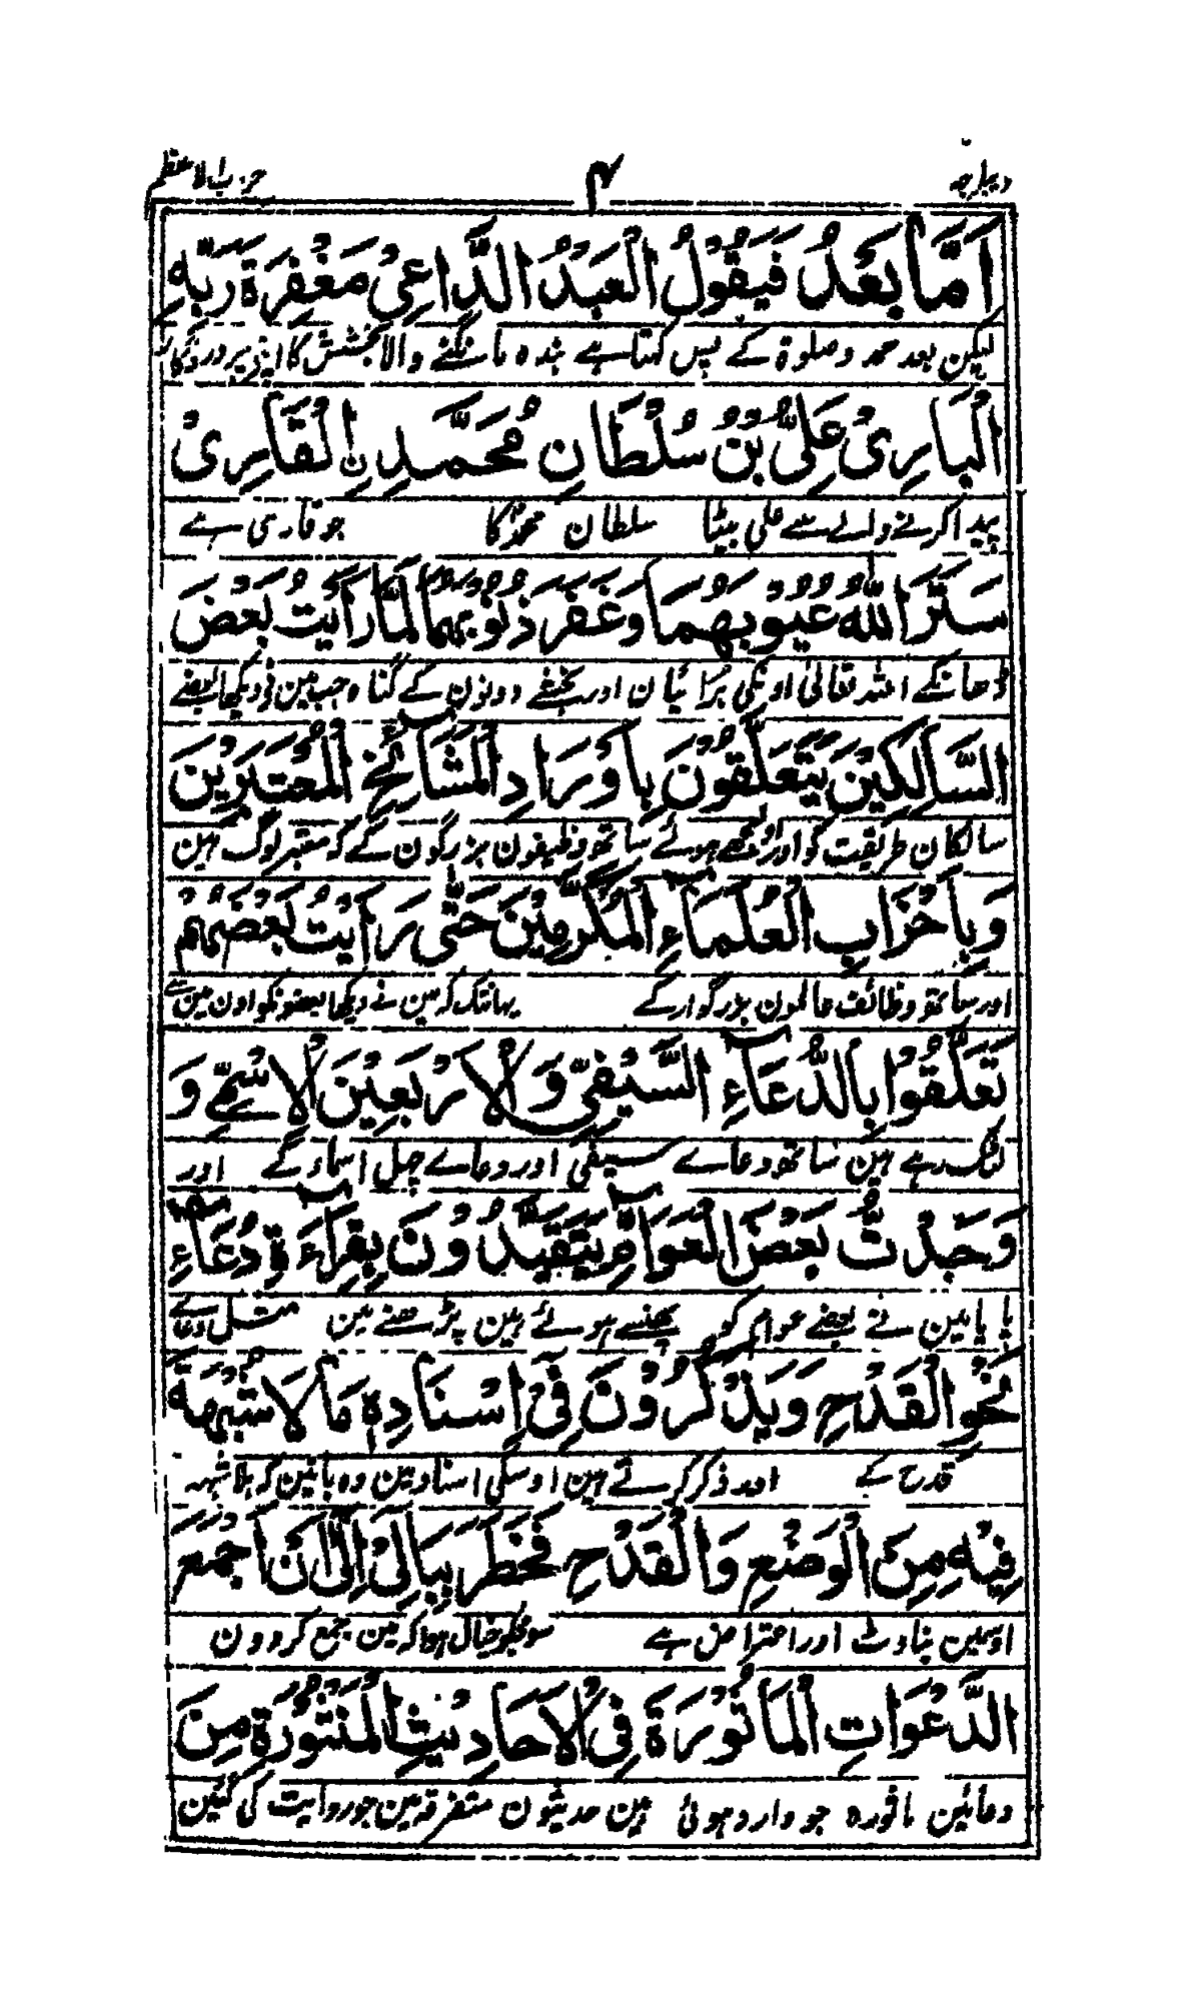 دیباچہ ۴ حزب الاعظم
اَمَّا بَعْدُ فَیَقُوْلُ الْعَبْدُ الدَّاعِیْ مَغْفِرَةَ رَبِّهِ
لیکن بعد حمد وصلوۃ کے پس کہتا ہے بندہ مانگنے والا بخشش کا اپنے پروردگار
الْبَارِیْ عَلِیُّ بْنُ سُلْطَانِ مُحَمَّدِنِ الْقَارِیْ
پیدا کرنے والے سے علی بیٹا سلطان محمد کا جو قاری ہے
سَتَرَ اللّٰهُ عُیُوْبَهُمَا وَغَفَرَ ذُنُوْبَهُمَا لَمَّا رَاَیْتُ بَعْضَ
ڈھانکے اللہ تعالیٰ اونکی برائیان اور بخشے دونون کے گناہ جب مین نے دیکھا بعضے
السَّالِكِیْنَ یَتَعَلَّقُوْنَ بِاَوْرَادِ الْمَشَآئِخِ الْمُعْتَبَرِیْنَ
سالکان طریقت کو اولجھے ہوئے ساتھ وظیفون بزرگون کے کہ معتبر لوگ ہین
وَبِاَحْزَابِ الْعُلَمَآءِ الْمُكَرَّمِیْنَ حَتّٰی رَاَیْتُ بَعْضَهُمْ
اور ساتھ وظائف عالمون بزرگوار کے یہانتک کہ مین نے دیکھا بعضونکو اون مین سے
تَعَلَّقُوْا بِالدُّعَآءِ السَّیْفِیِّ وَالْاَرْبَعِیْنَ الْاِسْمِیِّ وَ
لٹک رہے ہین ساتھ دعاے سیفی اور دعاے چہل اسماء کے اور
وَجَدْتُّ بَعْضَ الْعَوَآمِّ یَتَقَیَّدُوْنَ بِقِرَآءَةِ دُعَآءِ
پایا مین نے بعضے عوام کو پھنسے ہوئے ہین پڑھنے مین مثل دعاے
نَحْوِ الْقَدْحِ وَیَذْكُرُوْنَ فِیْ اِسْنَادِهٖ مَا لَا شُبْهَةَ
قدح کے اور ذکر کرتے ہین اوسکی اسناد مین وہ باتین کہ بلا شبہہ
فِیْهِ مِنَ الْوَضْعِ وَالْقَدْحِ فَخَطَرَ بِبَالِیْ اَنْ اَجْمَعَ
اوسمین بناوٹ اور اعتراض ہے سو مجھکو خیال ہوا کہ مین جمع کردون
الدَّعَوَاتِ الْمَاْثُوْرَةَ فِی الْاَحَادِیْثِ الْمَنْثُوْرَةِ مِنَ
دعائین ماثورہ جو وارد ہوئی ہین حدیثون متفرقہ مین جو روایت کی گئین